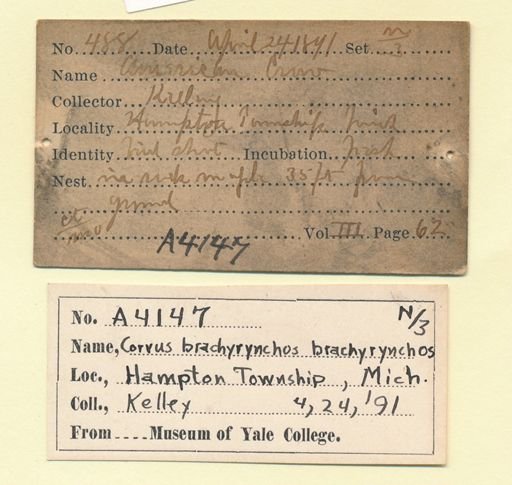 No. 488 Date April 24 1891 Set n/3
Name American Crow
Collector Kelley
Locality Hampton Township Mich
Identity Bird shot Incubation Fresh
Nest in rock maple 35 ft from
ground
Vol. III Page 62
A4147
No. A4147 N/3
Name, Corvus brachyrynchos brachyrynchos
Loc., Hampton Township, Mich.
Coll., Kelley 4, 24, '91
From ---- Museum of Yale College.